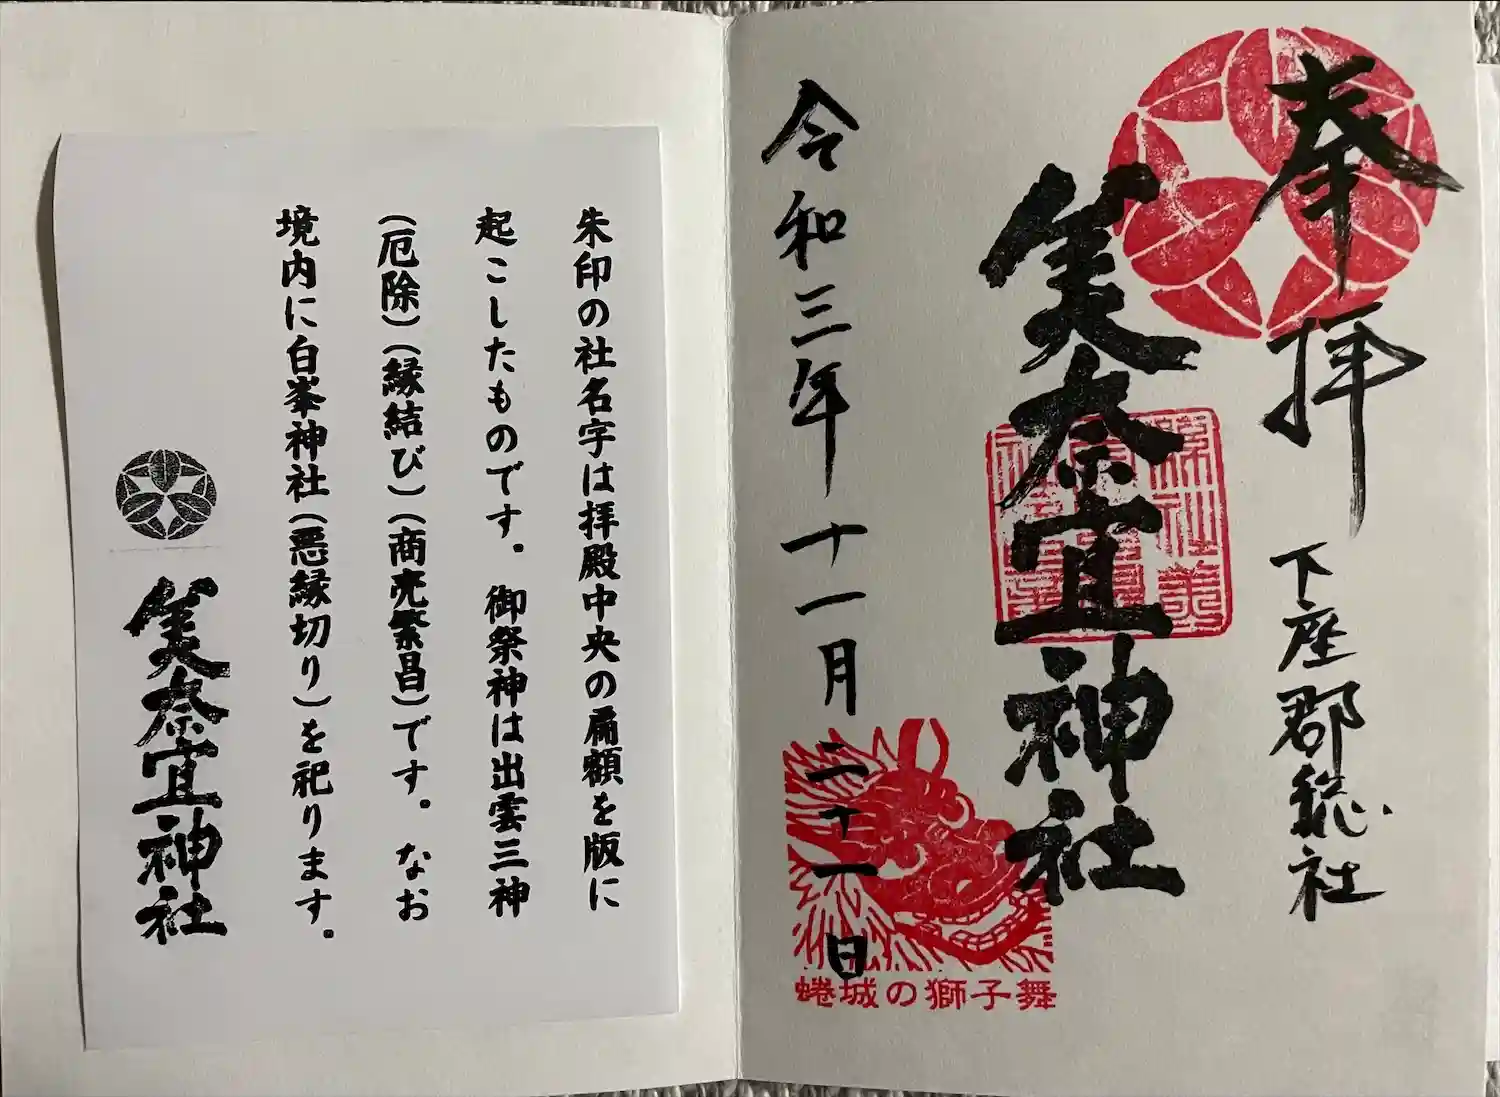 奉拝
下座郡総社
美奈宜神社
令和三年十一月二十一日
蜷城の獅子舞
朱印の社名字は拝殿中央の扁額を版に
起こしたものです。御祭神は出雲三神
(厄除)(縁結び)(商売繁昌)です。なお
境内に白峯神社(悪縁切り)を祀ります。
美奈宜神社